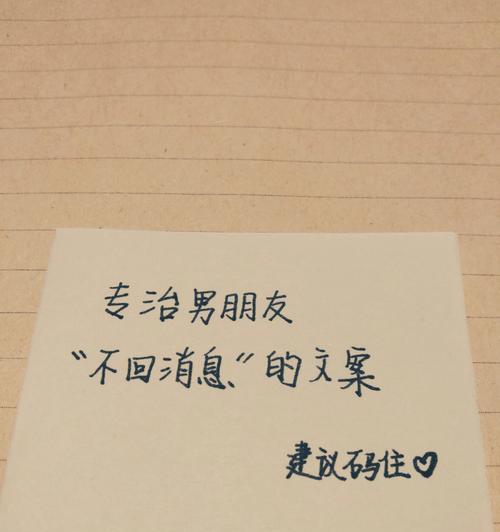 专治男朋友
“不回消息”的文案
建议码住♡